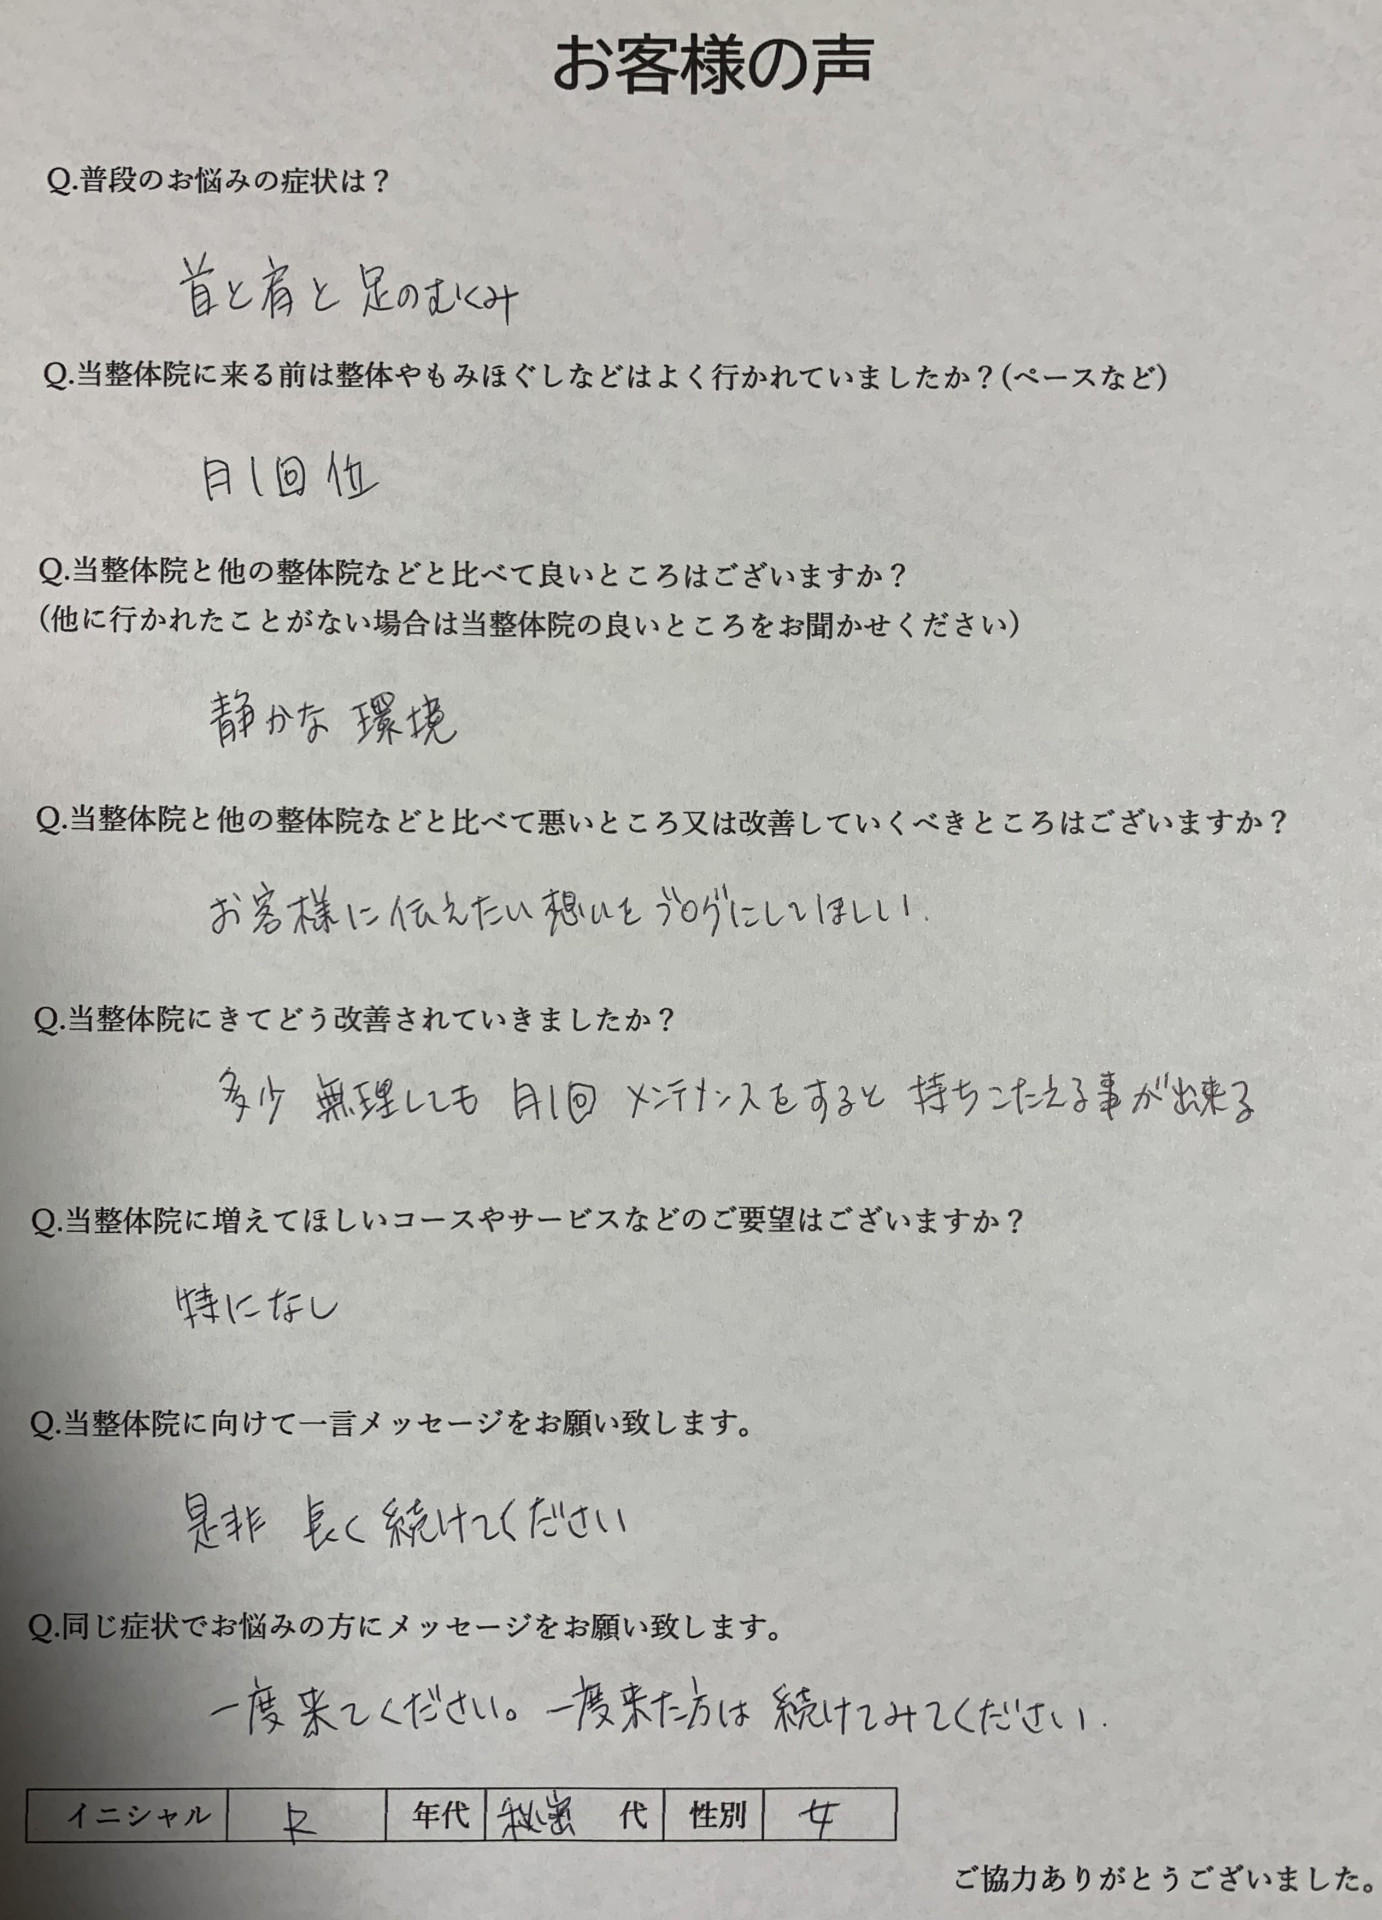 お客様の声
Q.普段のお悩みの症状は？
首と肩と足のむくみ
Q.当整体院に来る前は整体やもみほぐしなどはよく行かれていましたか？(ペースなど)
月1回位
Q.当整体院と他の整体院などと比べて良いところはございますか？
(他に行かれたことがない場合は当整体院の良いところをお聞かせください)
静かな環境
Q.当整体院と他の整体院などと比べて悪いところ又は改善していくべきところはございますか？
お客様に伝えたい想いをブログにしてほしい.
Q.当整体院にきてどう改善されていきましたか？
多少無理しても月1回メンテナンスをすると持ちこたえる事が出来る
Q.当整体院に増えてほしいコースやサービスなどのご要望はございますか？
特になし
Q.当整体院に向けて一言メッセージをお願い致します。
是非長く続けてください
Q.同じ症状でお悩みの方にメッセージをお願い致します。
一度来てください。一度来た方は続けてみてください.
イニシャル R 年代 秘密 代 性別 女
ご協力ありがとうございました。